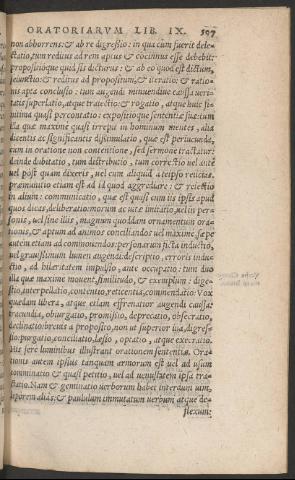 ORATORIARVM LIB. IX. 597
non abhorrens: & ab re digressio: in qua cum fuerit dele-
ctatio, tum reditus ad rem aptus & cōcinnus esse debebit:
propositióque quid sis dicturus: & ab eo quod est dictum,
seiunctio: & reditus ad propositum, & iteratio: & ratio-
nis apta conclusio: tum augendi minuendíue caussa veri-
tatis superlatio, atque traiectio: & rogatio, atque huic fi-
nitima quasi percontatio: expositióque sententiæ suæ: tum
illa quæ maxime quasi irrepit in hominum mentes, alia
dicentis ac significantis dissimulatio, quæ est periucunda,
cum in oratione non contentione, sed sermone tractatur:
deinde dubitatio, tum distributio, tum correctio vel ante
vel post quam dixeris, vel cum aliquid a teipso reiicias.
præmunitio etiam est ad id quod aggrediare: & reiectio
in alium: communicatio, quæ est quasi cum iis ipsis apud
quos dicas, deliberatio: morum ac vitæ imitatio, vel in per-
sonis, vel sine illis, magnum quoddam ornamentum orá-
tionis, & aptum ad animos conciliandos vel maxime, sæpe
autem etiam ad commouendos: personarum ficta inductio,
vel grauissimum lumen augendi: descriptio, erroris indu-
ctio, ad hilaritatem impulsio, ante occupatio: tum duo
illa quæ maxime mouent, similitudo, & exemplum: dige-
stio, interpellatio, contentio, reticentia, commendatio: Vox
quædam libera, atque etiam effrenatior augendi caussa:
iracundia, obiurgatio, promissio, deprecatio, obsecratio,
declinatio breuis a proposito, non vt superior illa, digres-
sio: purgatio, conciliatio, læsio, optatio, atque execratio.
His fere luminibus illustrant orationem sententiæ. Ora-
tionis autem ipsius tanquam armorum est vel ad vsum
comminatio & quasi petitio, vel ad venustatem ipsa tra-
ctatio. Nam & geminatio verborum habet interdum vim,
leporem alias: & paululum immutatum verbum atque de-
flexum: